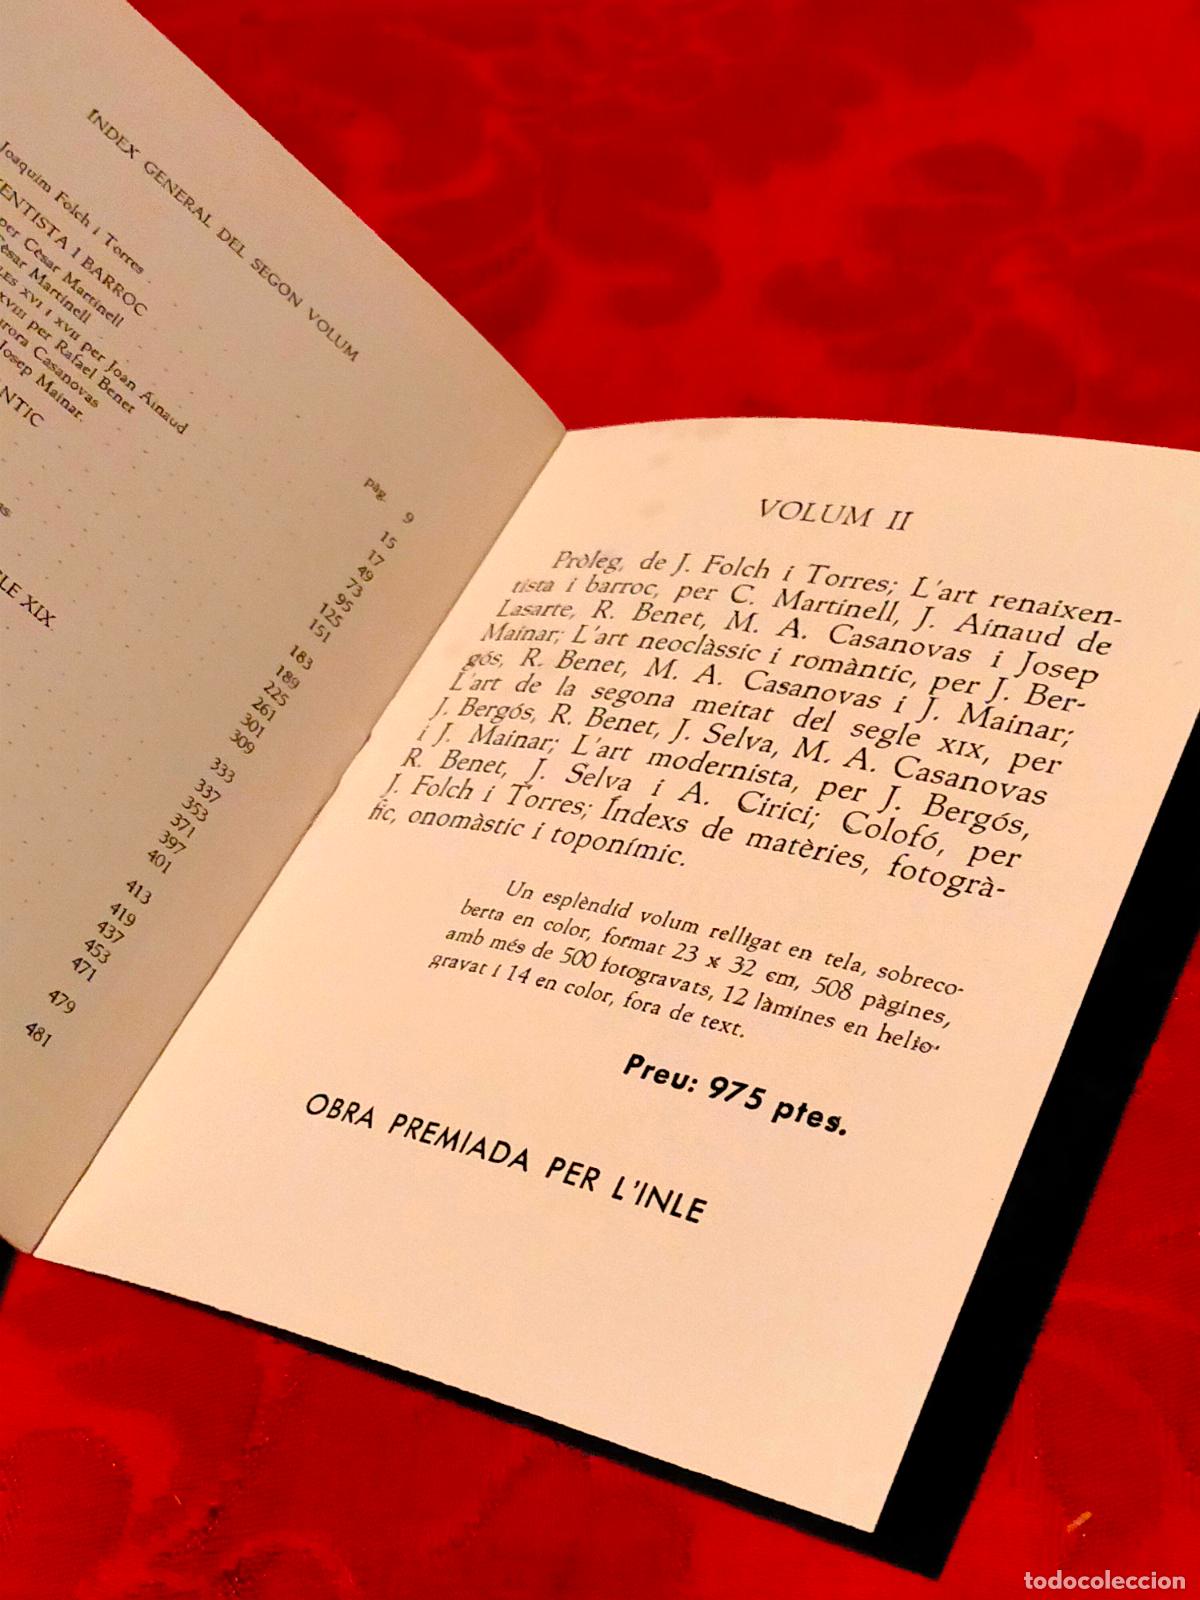 INDEX GENERAL DEL SEGON VOLUM
pàg.
Joaquim Folch i Torres 9
ENTISTA I BARROC 15
per Cèsar Martinell 17
Cèsar Martinell 49
LES XVI I XVII per Joan Ainaud 73
XVIII per Rafael Benet 95
Casanovas 125
Josep Mainar. 151
NTIC 183
189
225
261
301
309
LE XIX. 333
337
353
371
397
401
413
419
437
453
471
479
481
VOLUM II
Pròleg, de J. Folch i Torres; L'art renaixen-
tista i barroc, per C. Martinell, J. Ainaud de
Lasarte, R. Benet, M. A. Casanovas i Josep
Mainar; L'art neoclàssic i romàntic, per J. Ber-
gós, R. Benet, M. A. Casanovas i J. Mainar;
L'art de la segona meitat del segle XIX, per
J. Bergós, R. Benet, J. Selva, M. A. Casanovas
i J. Mainar; L'art modernista, per J. Bergós,
R. Benet, J. Selva i A. Cirici; Colofó, per
J. Folch i Torres; Índexs de matèries, fotogrà-
fic, onomàstic i toponímic.
Un esplèndid volum relligat en tela, sobreco-
berta en color, format 23 x 32 cm, 508 pàgines,
amb més de 500 fotogravats, 12 làmines en helio-
gravat i 14 en color, fora de text.
Preu: 975 ptes.
OBRA PREMIADA PER L'INLE
todocoleccion